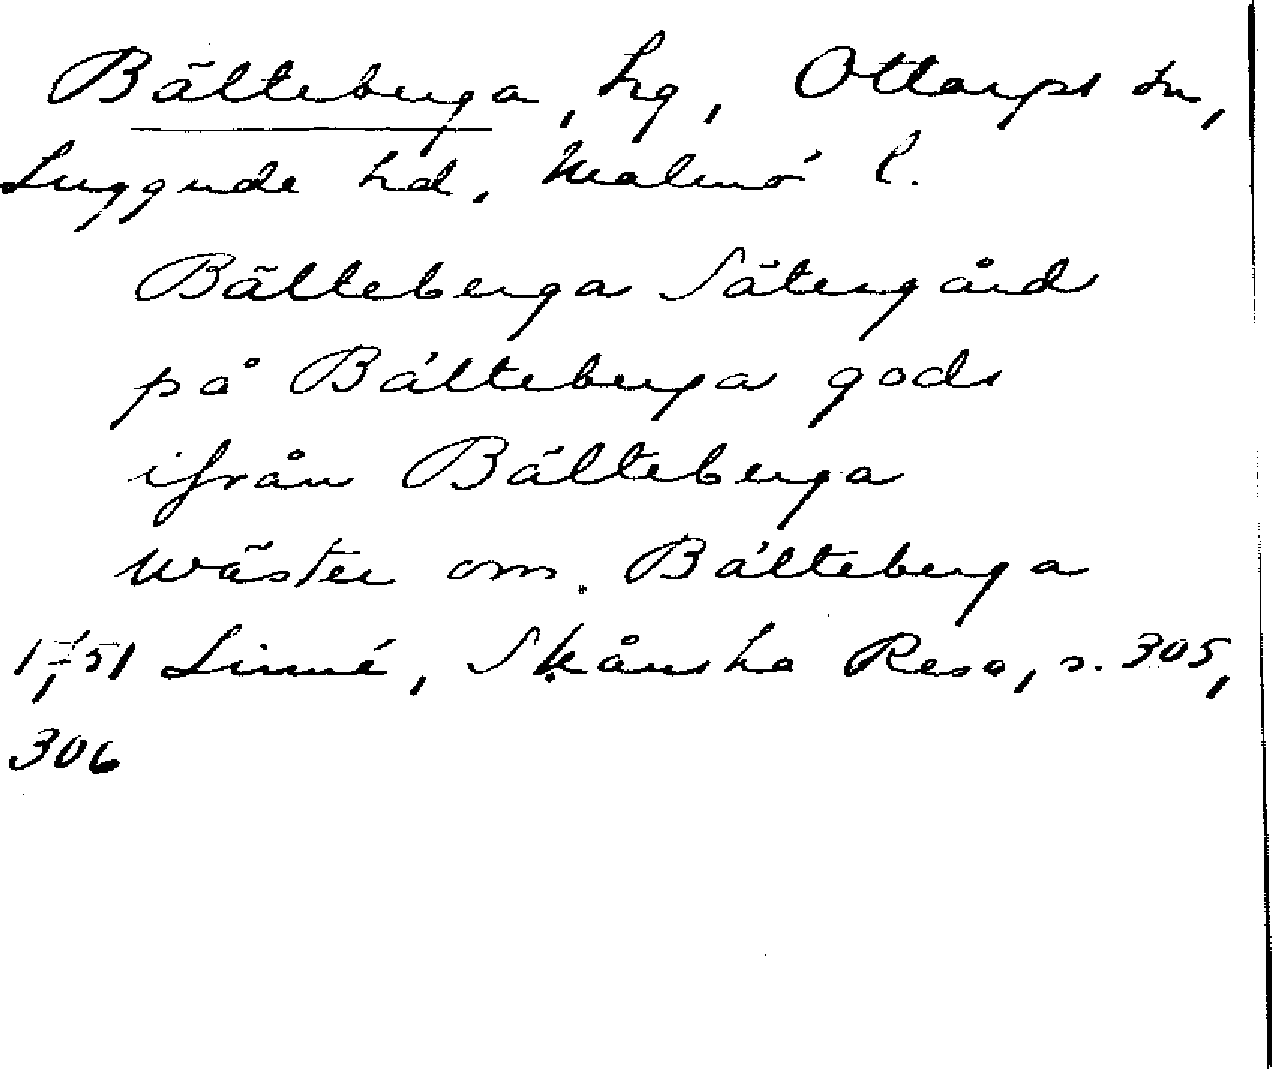 Bälteberga, hg, Ottarps sn,
Luggude hd, Malmö l.
Bälteberga Sätergård
på Bälteberga gods
ifrån Bälteberga
wäster om Bälteberga
1751 Linné, Skånska Resa, s. 305,
306